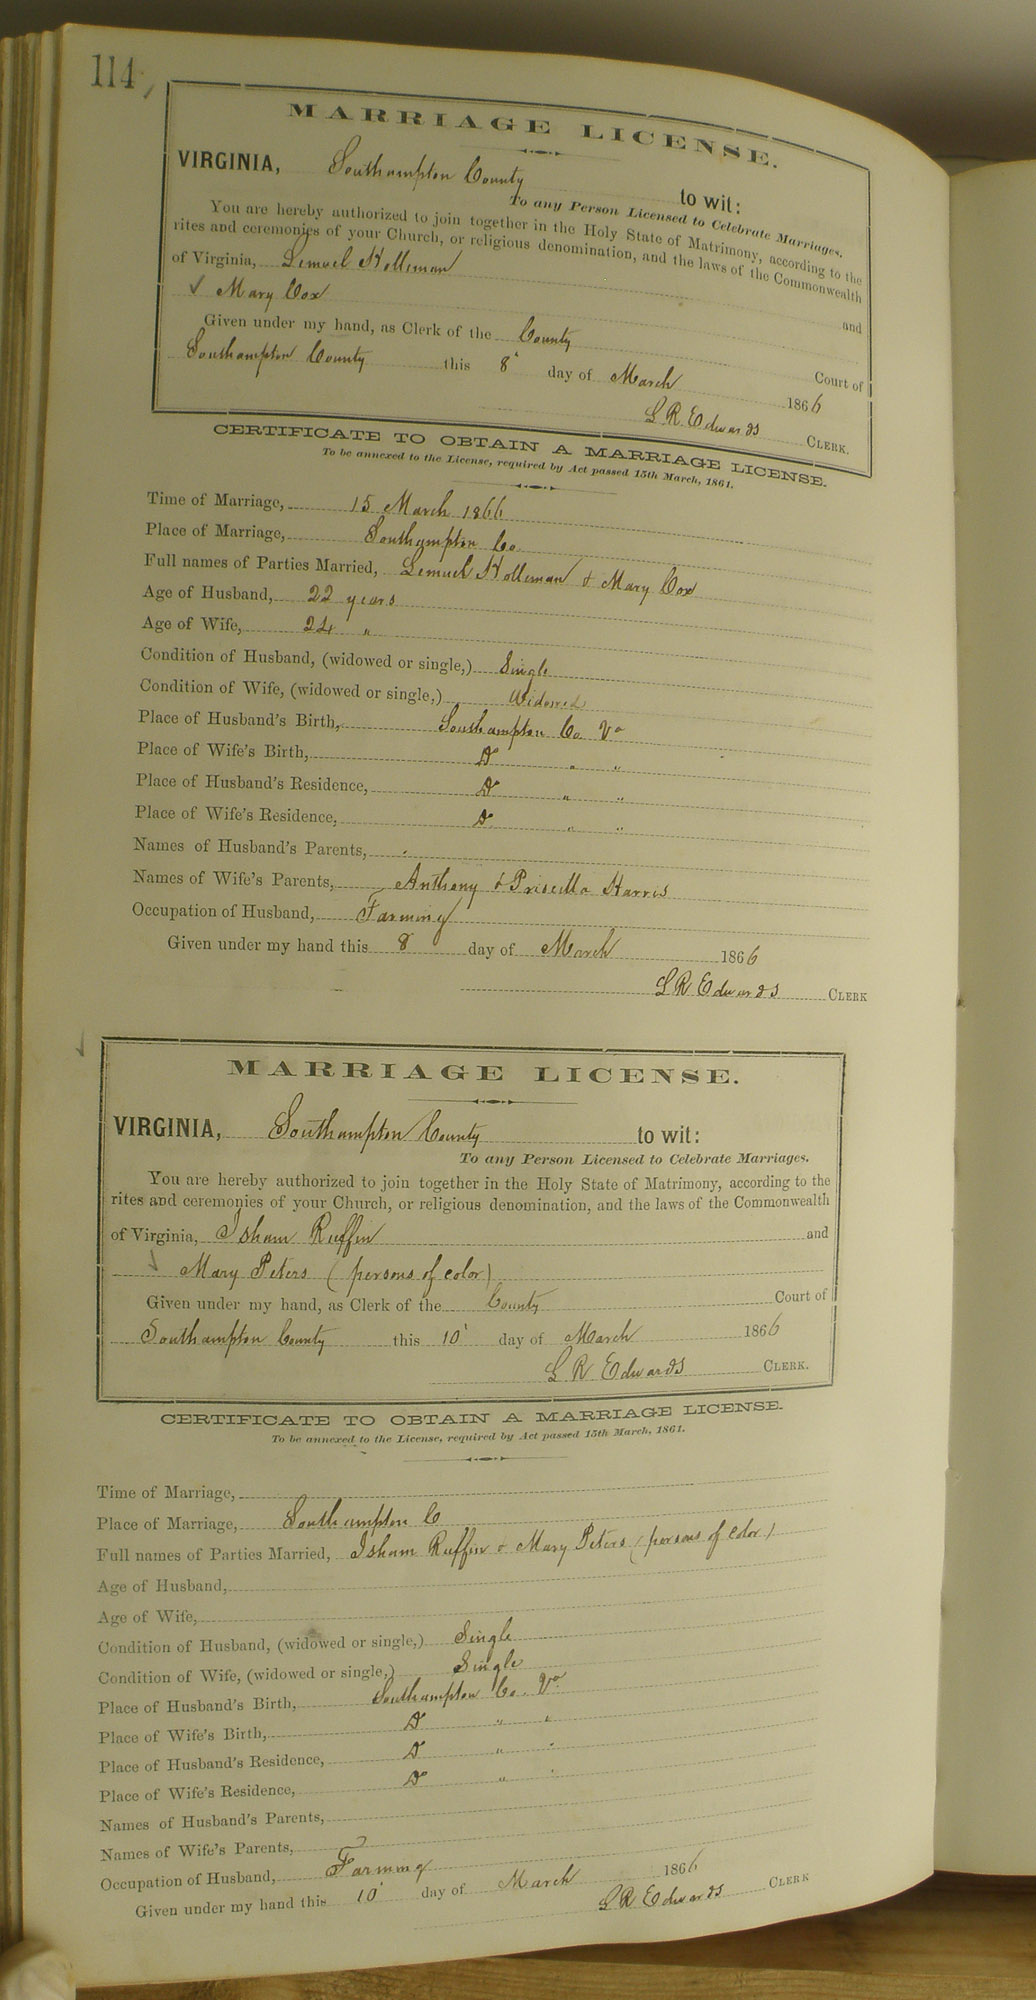 114
MARRIAGE LICENSE.
VIRGINIA, Southampton County to wit:
To any Person Licensed to Celebrate Marriages.
You are hereby authorized to join together in the Holy State of Matrimony, according to the
rites and ceremonies of your Church, or religious denomination, and the laws of the Commonwealth
of Virginia, Lemuel Holleman and
✓ Mary Cox
Given under my hand, as Clerk of the County Court of
Southampton County this 8' day of March 1866
L R Edwards CLERK.
CERTIFICATE TO OBTAIN A MARRIAGE LICENSE.
To be annexed to the License, required by Act passed 15th March, 1861.
Time of Marriage, 15 March 1866
Place of Marriage, Southampton Co.
Full names of Parties Married, Lemuel Holleman & Mary Cox
Age of Husband, 22 years
Age of Wife, 24 "
Condition of Husband, (widowed or single,) Single
Condition of Wife, (widowed or single,) Widowed
Place of Husband's Birth, Southampton Co. Va
Place of Wife's Birth, Do " "
Place of Husband's Residence, Do " "
Place of Wife's Residence, Do " "
Names of Husband's Parents,
Names of Wife's Parents, Anthony & Priscilla Harris
Occupation of Husband, Farming
Given under my hand this 8 day of March 1866
L R Edwards CLERK
✓
MARRIAGE LICENSE.
VIRGINIA, Southampton County to wit:
To any Person Licensed to Celebrate Marriages.
You are hereby authorized to join together in the Holy State of Matrimony, according to the
rites and ceremonies of your Church, or religious denomination, and the laws of the Commonwealth
of Virginia, Isham Ruffin and
✓ Mary Peters (persons of color)
Given under my hand, as Clerk of the County Court of
Southampton County this 10' day of March 1866
L R Edwards CLERK.
CERTIFICATE TO OBTAIN A MARRIAGE LICENSE.
To be annexed to the License, required by Act passed 15th March, 1861.
Time of Marriage,
Place of Marriage, Southampton Co
Full names of Parties Married, Isham Ruffin & Mary Peters (persons of color)
Age of Husband,
Age of Wife,
Condition of Husband, (widowed or single,) Single
Condition of Wife, (widowed or single,) Single
Place of Husband's Birth, Southampton Co. Va
Place of Wife's Birth, Do " "
Place of Husband's Residence, Do " "
Place of Wife's Residence, Do " "
Names of Husband's Parents,
Names of Wife's Parents,
Occupation of Husband, Farming
Given under my hand this 10' day of March 1866
L R Edwards CLERK